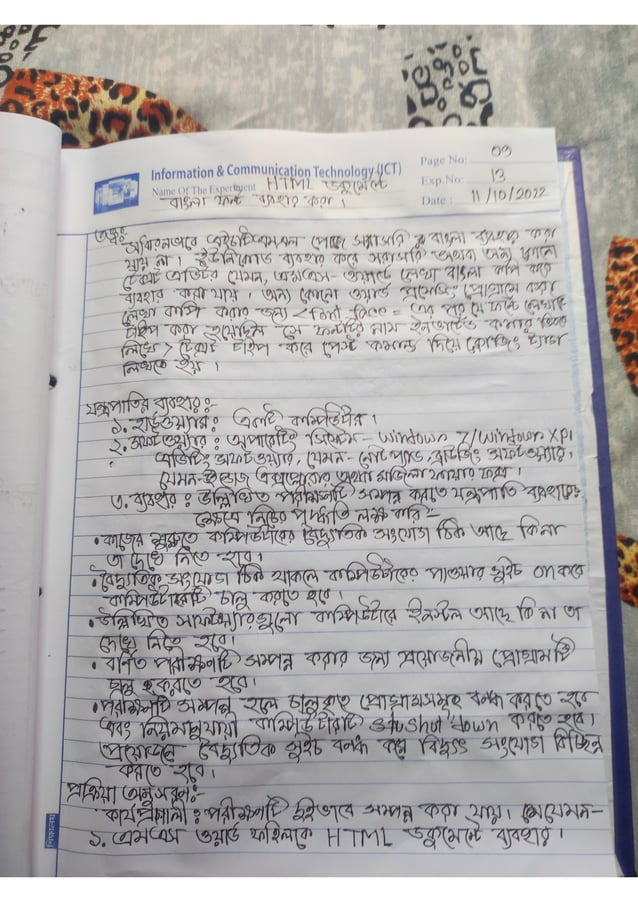 Information & Communication Technology (ICT)
Page No: 03
Name Of The Experiment HTML ডকুমেন্টে
Exp.No: 13
বাংলা ফন্ট ব্যবহার করা।
Date: 11/10/2022
তত্ত্ব:
সাধারনভাবে এইচটিএমএল পেজে সরাসরি বাংলা ব্যবহার করা
যায় না। ইউনিকোড ব্যবহার করে সরাসরি অথবা অন্য কোনো
টেক্সট এডিটর যেমন, এমএস-ওয়ার্ডে লেখা বাংলা কপি করে
ব্যবহার করা যায়। অন্য কোনো ওয়ার্ড প্রসেসিং প্রোগ্রামে করা
লেখা কপি করার জন্য <font face= এর পর যে ফন্টে লেখাটি
টাইপ করা হয়েছিল সে ফন্টটির নাম ইনভার্টেড কমার ভিতর
লিখে > টেক্সট টাইপ করে পেস্ট কমান্ড দিয়ে ক্লোজিং ট্যাগ
লিখতে হয়।
যন্ত্রপাতির ব্যবহার:-
১. হার্ডওয়্যার: একটি কম্পিউটার।
২. সফটওয়্যার: অপারেটিং সিস্টেম- Windown 7/Windown XP।
এডিটিং সফটওয়্যার, যেমন- নোট প্যাড, ব্রাউজিং সফটওয়্যার,
যেমন- ইন্টারনেট এক্সপ্লোরার অথবা মজিলা ফায়ার ফক্স।
৩. ব্যবহার: উল্লিখিত পরীক্ষণটি সম্পন্ন করতে যন্ত্রপাতি ব্যবহারের
ক্ষেত্রে নিচের পদ্ধতি লক্ষ করি:-
• কাজের শুরুতে কম্পিউটারের বৈদ্যুতিক সংযোগ ঠিক আছে কিনা
তা দেখে নিতে হবে।
• বৈদ্যুতিক সংযোগ ঠিক থাকলে কম্পিউটারের পাওয়ার সুইচ on করে
কম্পিউটারটি চালু করতে হবে।
• উল্লিখিত সফটওয়্যারগুলো কম্পিউটারে ইনস্টল আছে কি না তা
দেখে নিতে হবে।
• বর্ণিত পরীক্ষণটি সম্পন্ন করার জন্য প্রয়োজনীয় প্রোগ্রামটি
চালু করতে হবে।
• পরীক্ষণটি সম্পন্ন হলে চালুকৃত প্রোগ্রামসমূহ বন্ধ করতে হবে
এবং নিয়মানুযায়ী কম্পিউটারটি Shut down করতে হবে।
প্রয়োজনে বৈদ্যুতিক সুইচ বন্ধ করে বিদ্যুৎ সংযোগ বিচ্ছিন্ন
করতে হবে।
প্রক্রিয়া অনুসরণ:-
কার্যপ্রণালী: পরীক্ষণটি দুইভাবে সম্পন্ন করা যায়। যেমন-
১. এমএস ওয়ার্ড ফাইলকে HTML ডকুমেন্টে ব্যবহার।